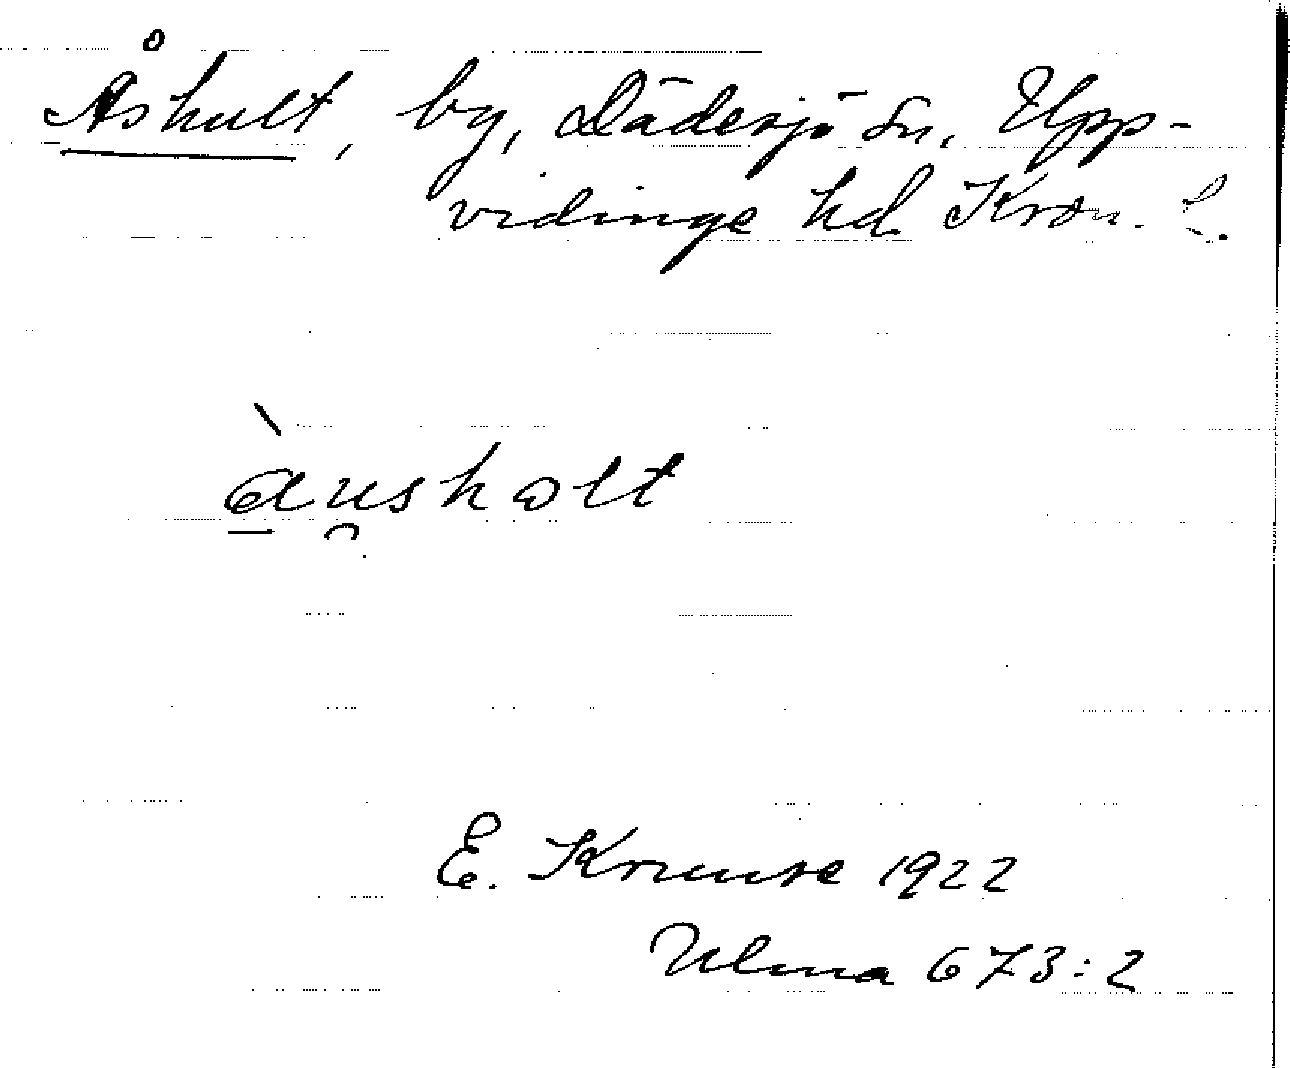 Åshult, by, Dädesjö sn, Upp-
vidinge hd Kron. L.
àu̯sholt
E. Kruuse 1922
Ulma 673:2